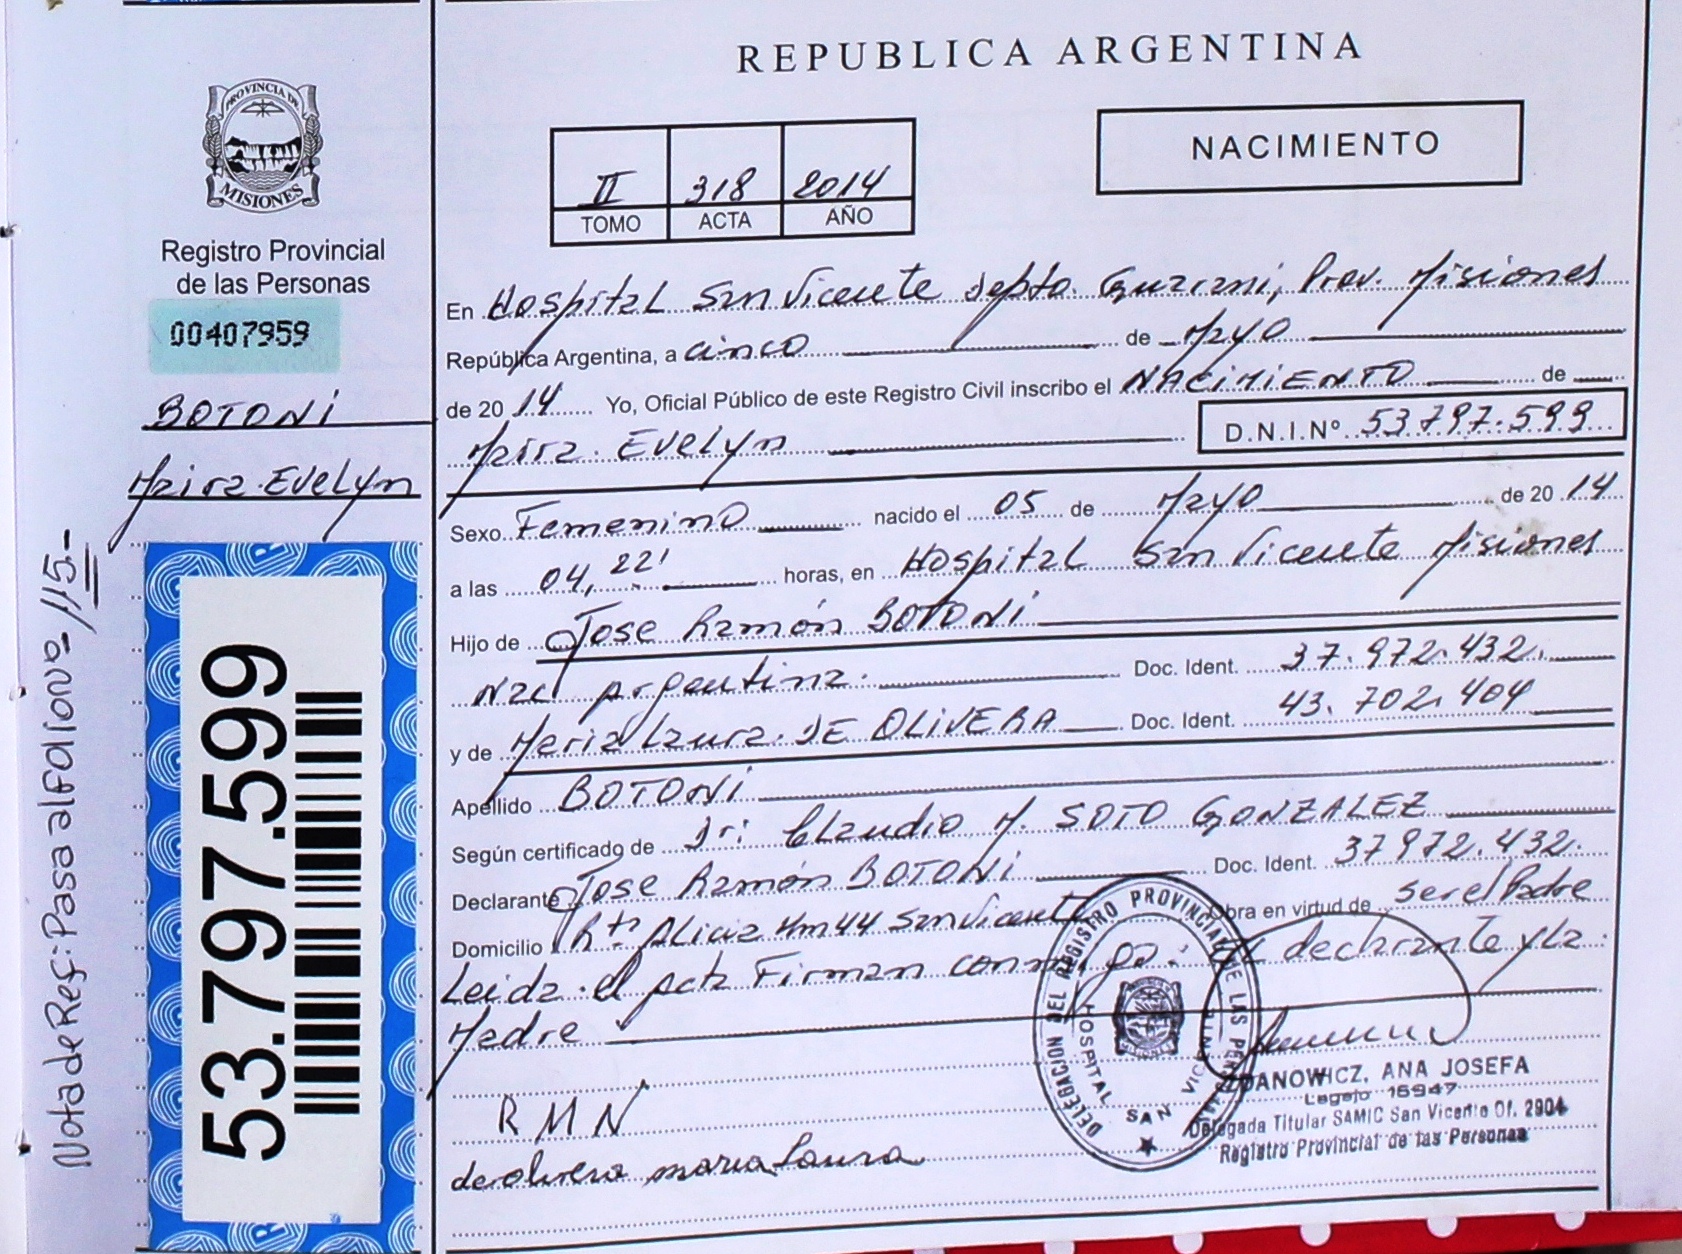 REPUBLICA ARGENTINA
NACIMIENTO
II 318 2014
TOMO ACTA AÑO
PROVINCIA DE
MISIONES
Registro Provincial
de las Personas
00407959
BOTONI
Maira Evelyn
53.797.599
Nota de Ref: Pasa al folio nº 115.-
En Hospital San Vicente Depto. Guarani, Prov. Misiones
República Argentina, a cinco de Mayo
de 2014 Yo, Oficial Público de este Registro Civil inscribo el NACIMIENTO de
Maira Evelyn D.N.I.Nº 53.797.599
Sexo Femenino nacido el 05 de Mayo de 2014
a las 04,22' horas, en Hospital San Vicente Misiones
Hijo de Jose Ramón BOTONI
Nac Argentina Doc. Ident. 37.972.432
y de Maria Laura DE OLIVERA Doc. Ident. 43.702.404
Apellido BOTONI
Según certificado de Dr: Claudio M. SOTO GONZALEZ
Declarante Jose Ramón BOTONI Doc. Ident. 37972.432
Domicilio Rta Alicia Km 44 San Vicente Obra en virtud de ser el Padre
Leida el acta Firman conmigo El declarante y La
Madre
RMN
de olivera maria Laura
DELEGACION DEL REGISTRO PROVINCIAL DE LAS PERSONAS
HOSPITAL SAN VICENTE
ZDANOWICZ, ANA JOSEFA
Legajo 16947
Delegada Titular SAMIC San Vicente Of. 2904
Registro Provincial de las Personas